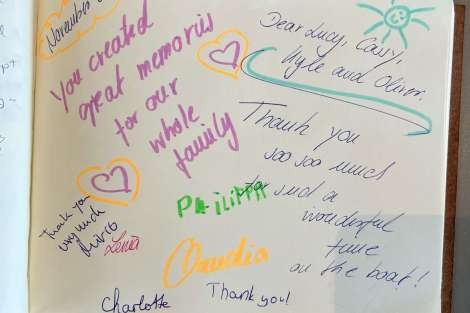 November
You created
great memories
for our
whole
family
Dear Lucy,
Kyle and Oliver.
Thank you
soo soo much
for such a
wonderful
time
on the boat!
Thank you
very much
Marco
Lena
PHILIPPA
Claudia
Charlotte
Thank you!